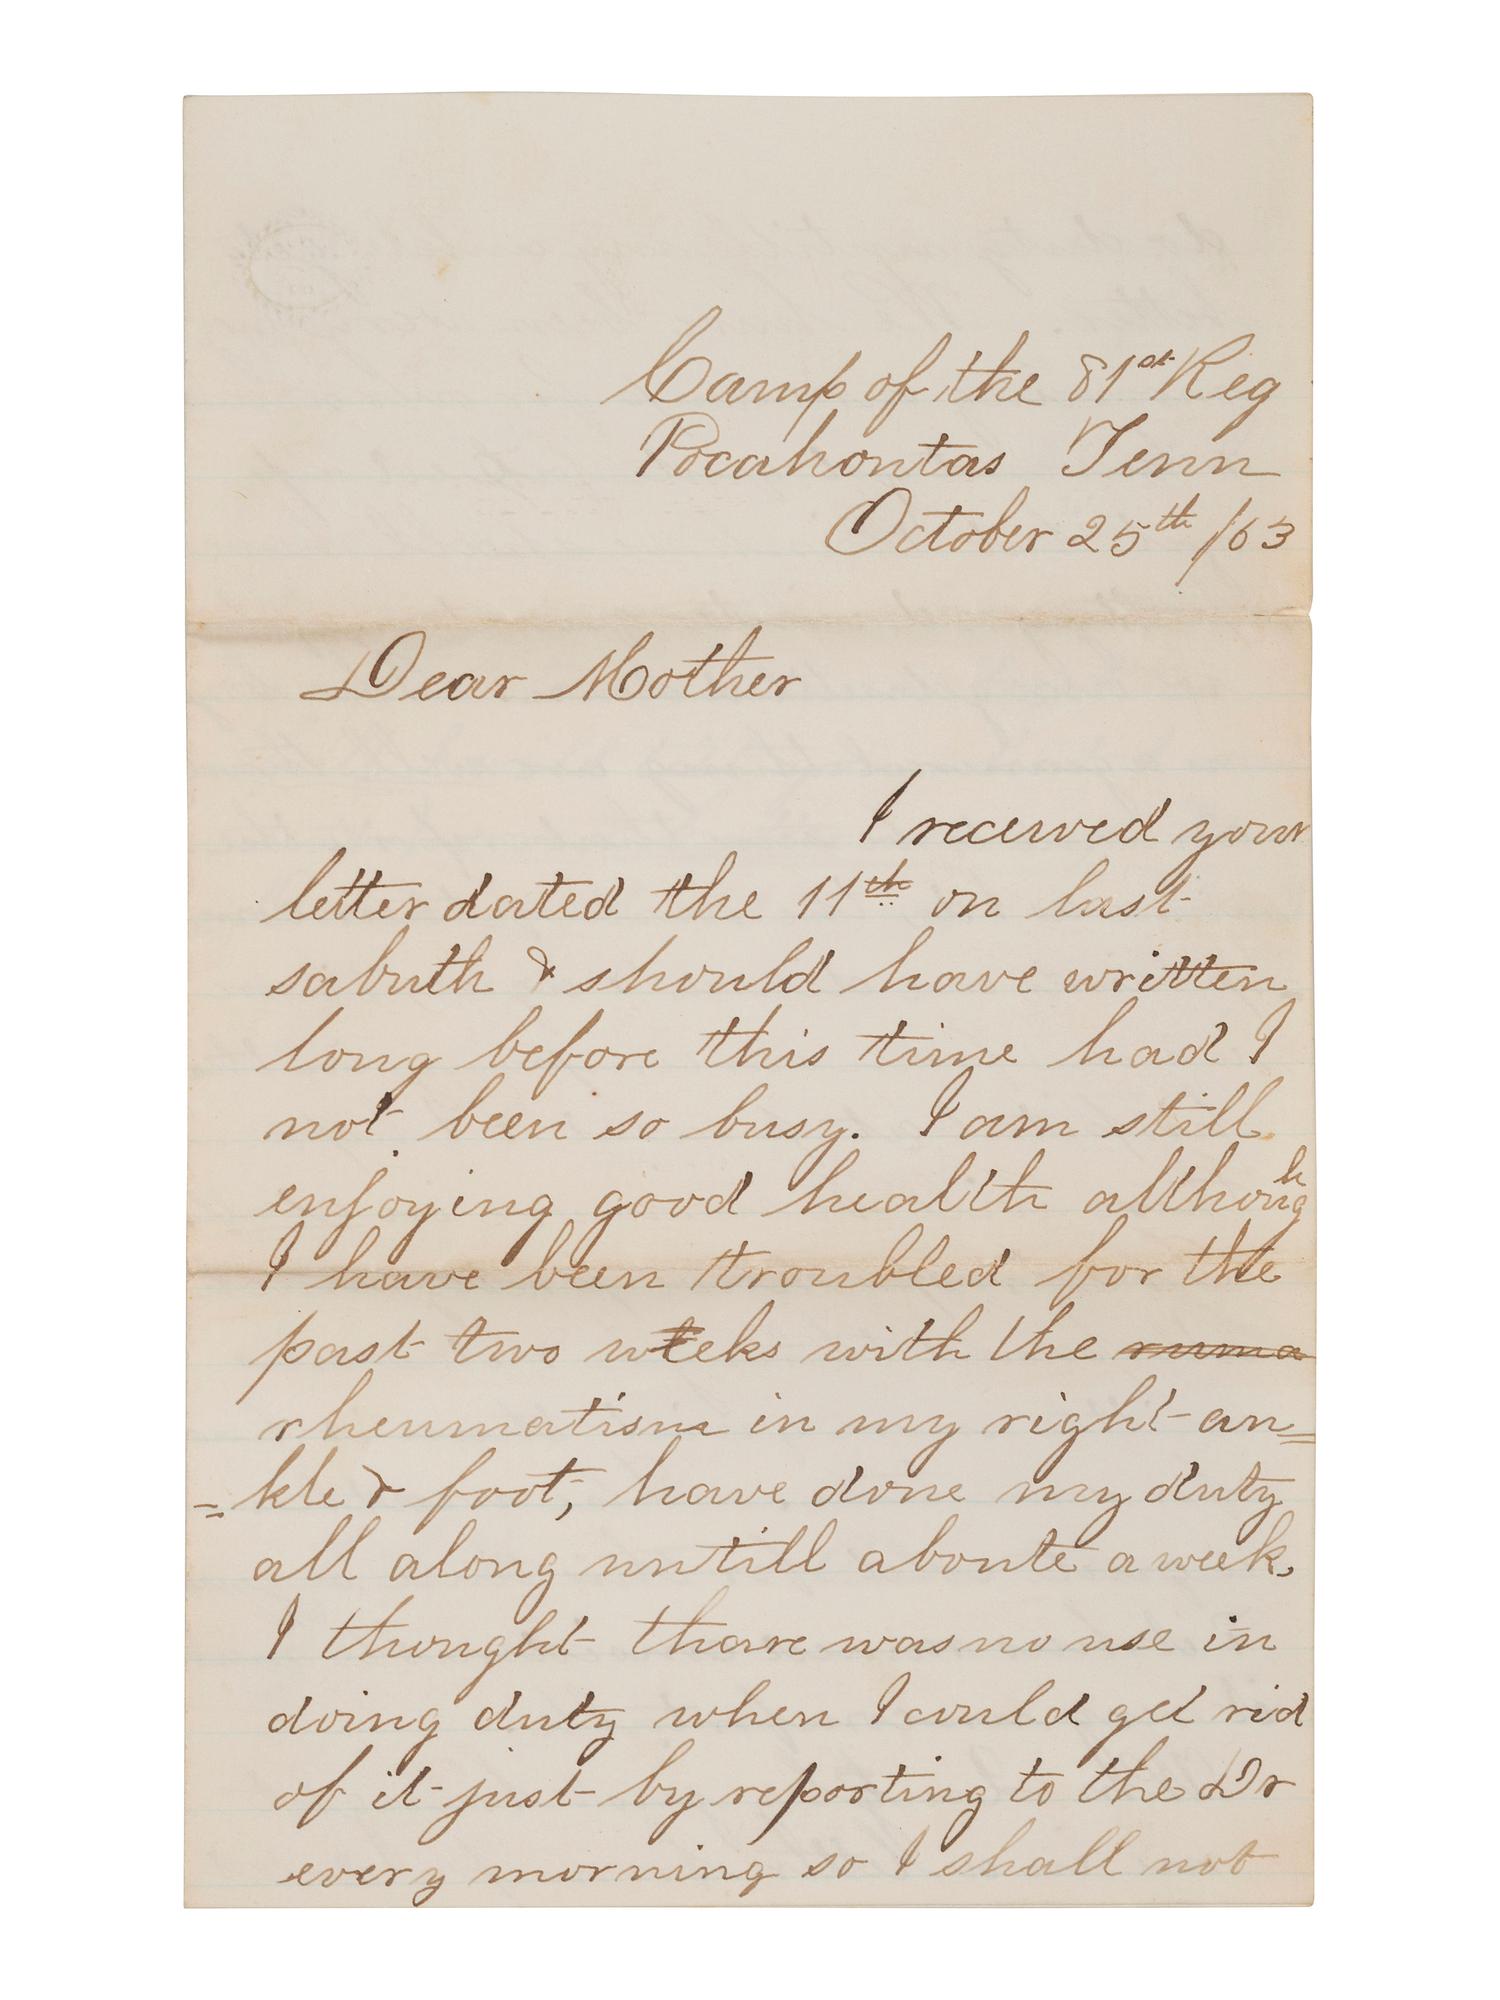 Camp of the 81st Reg
Pocahontas Tenn
October 25th /63
Dear Mother
I received your
letter dated the 11th on last
sabuth & should have written
long before this time had I
not been so busy. I am still
enjoying good health although
I have been troubled for the
past two weeks with the ruma
rheumatism in my right an=
=kle & foot, have done my duty
all along untill aboute a week.
I thought thare was no use in
doing duty when I could get rid
of it just by reporting to the Dr
every morning so I shall not